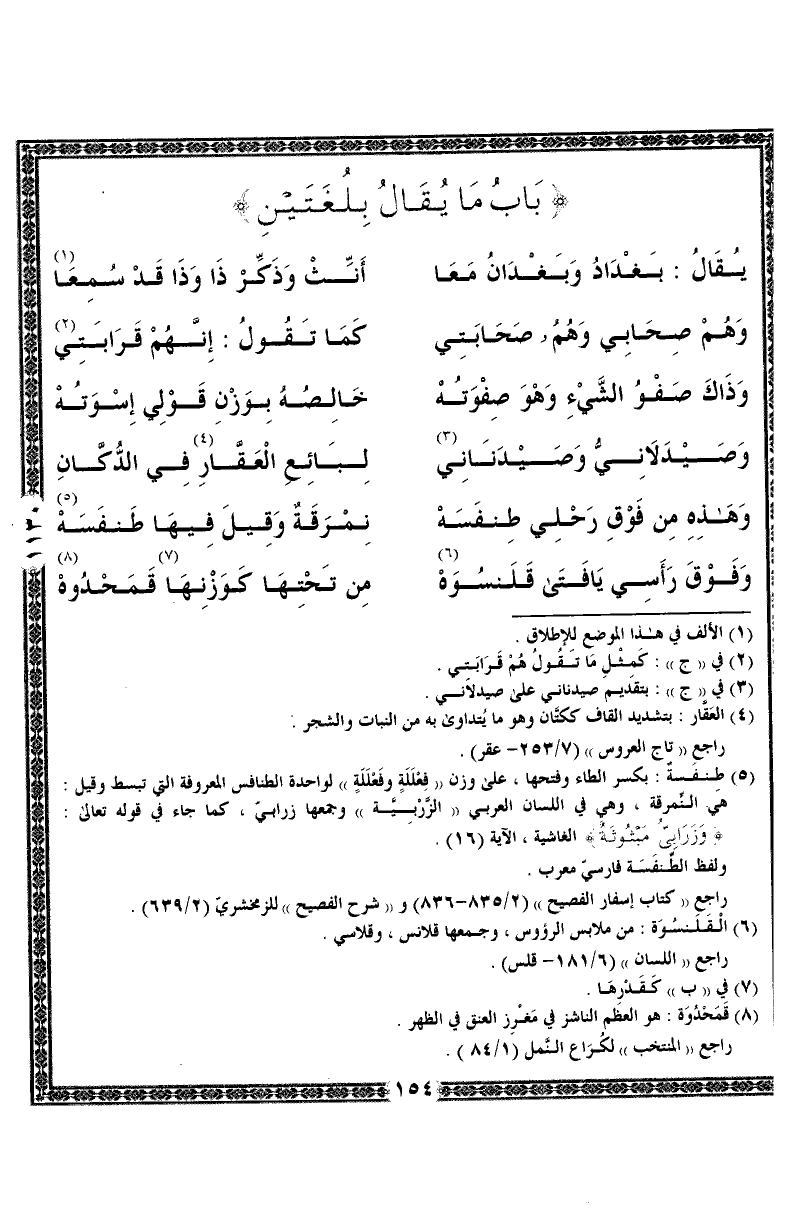 ﴿ بَابُ مَا يُقَالُ بِلُغَتَيْنِ ﴾
يُقَالُ : بَغْدَادُ وَبَغْدَانُ مَعَا أَنِّثْ وَذَكِّرْ ذَا وَذَا قَدْ سُمِعَا (١)
وَهُمْ صِحَابِي وَهُمُ صَحَابَتِي كَمَا تَقُولُ : إِنَّهُمْ قَرَابَتِي (٢)
وَذَاكَ صَفْوُ الشَّيْءِ وَهْوَ صِفْوَتُهْ خَالِصُهُ بِوَزْنِ قَوْلِي إِسْوَتُهْ
وَصَيْدَلَانِيُّ وَصَيْدَنَانِي (٣) لِبَائِعِ الْعَقَّارِ (٤) فِي الدُّكَّانِ
وَهَٰذِهِ مِن فَوْقِ رَحْلِي طِنفَسَهْ نِمْرَقَةٌ وَقِيلَ فِيهَا طَنفَسَهْ (٥)
وَفَوْقَ رَأْسِي يَافَتَىٰ قَلَنسُوَهْ (٦) مِن تَحْتِهَا كَوَزْنِهَا (٧) قَمَحْدُوهْ (٨)
(١) الألف في هٰذا الموضع للإطلاق .
(٢) في « ج » : كَمِثْلِ مَا تَقُولُ هُمْ قَرَابَتِي .
(٣) في « ج » : بتقديم صيدناني على صيدلاني .
(٤) العَقَّار : بتشديد القاف ككتَّان وهو ما يُتداوىٰ به من النبات والشجر .
راجع « تاج العروس » (٢٥٣/٧- عقر) .
(٥) طِنفَسةٌ : بكسر الطاء وفتحها ، علىٰ وزن « فِعْلَلَةٍ وفَعْلَلَةٍ » لواحدة الطنافس المعروفة التي تبسط وقيل :
هي النِّمرقة ، وهي في اللسان العربي « الزَّرْبِيَّة » وجمعها زرابيّ ، كما جاء في قوله تعالىٰ :
﴿ وَزَرَابِيُّ مَبْثُوثَةٌ ﴾ الغاشية ، الآية (١٦) .
ولفظ الطِّنفَسَة فارسيّ معرب .
راجع « كتاب إسفار الفصيح » (٨٣٥/٢-٨٣٦) و « شرح الفصيح » للزمخشريّ (٦٣٩/٢) .
(٦) الْقَلَنسُوَة : من ملابس الرؤوس ، وجمعها قلانس ، وقلاسي .
راجع « اللسان » (١٨١/٦- قلس) .
(٧) في « ب » كَقَدْرِهَا .
(٨) قَمَحْدُوَة : هو العظم الناشز في مَغْرِزِ العنق في الظهر .
راجع « المنتخب » لكُرَاع النَّمل (٨٤/١) .
١٥٤